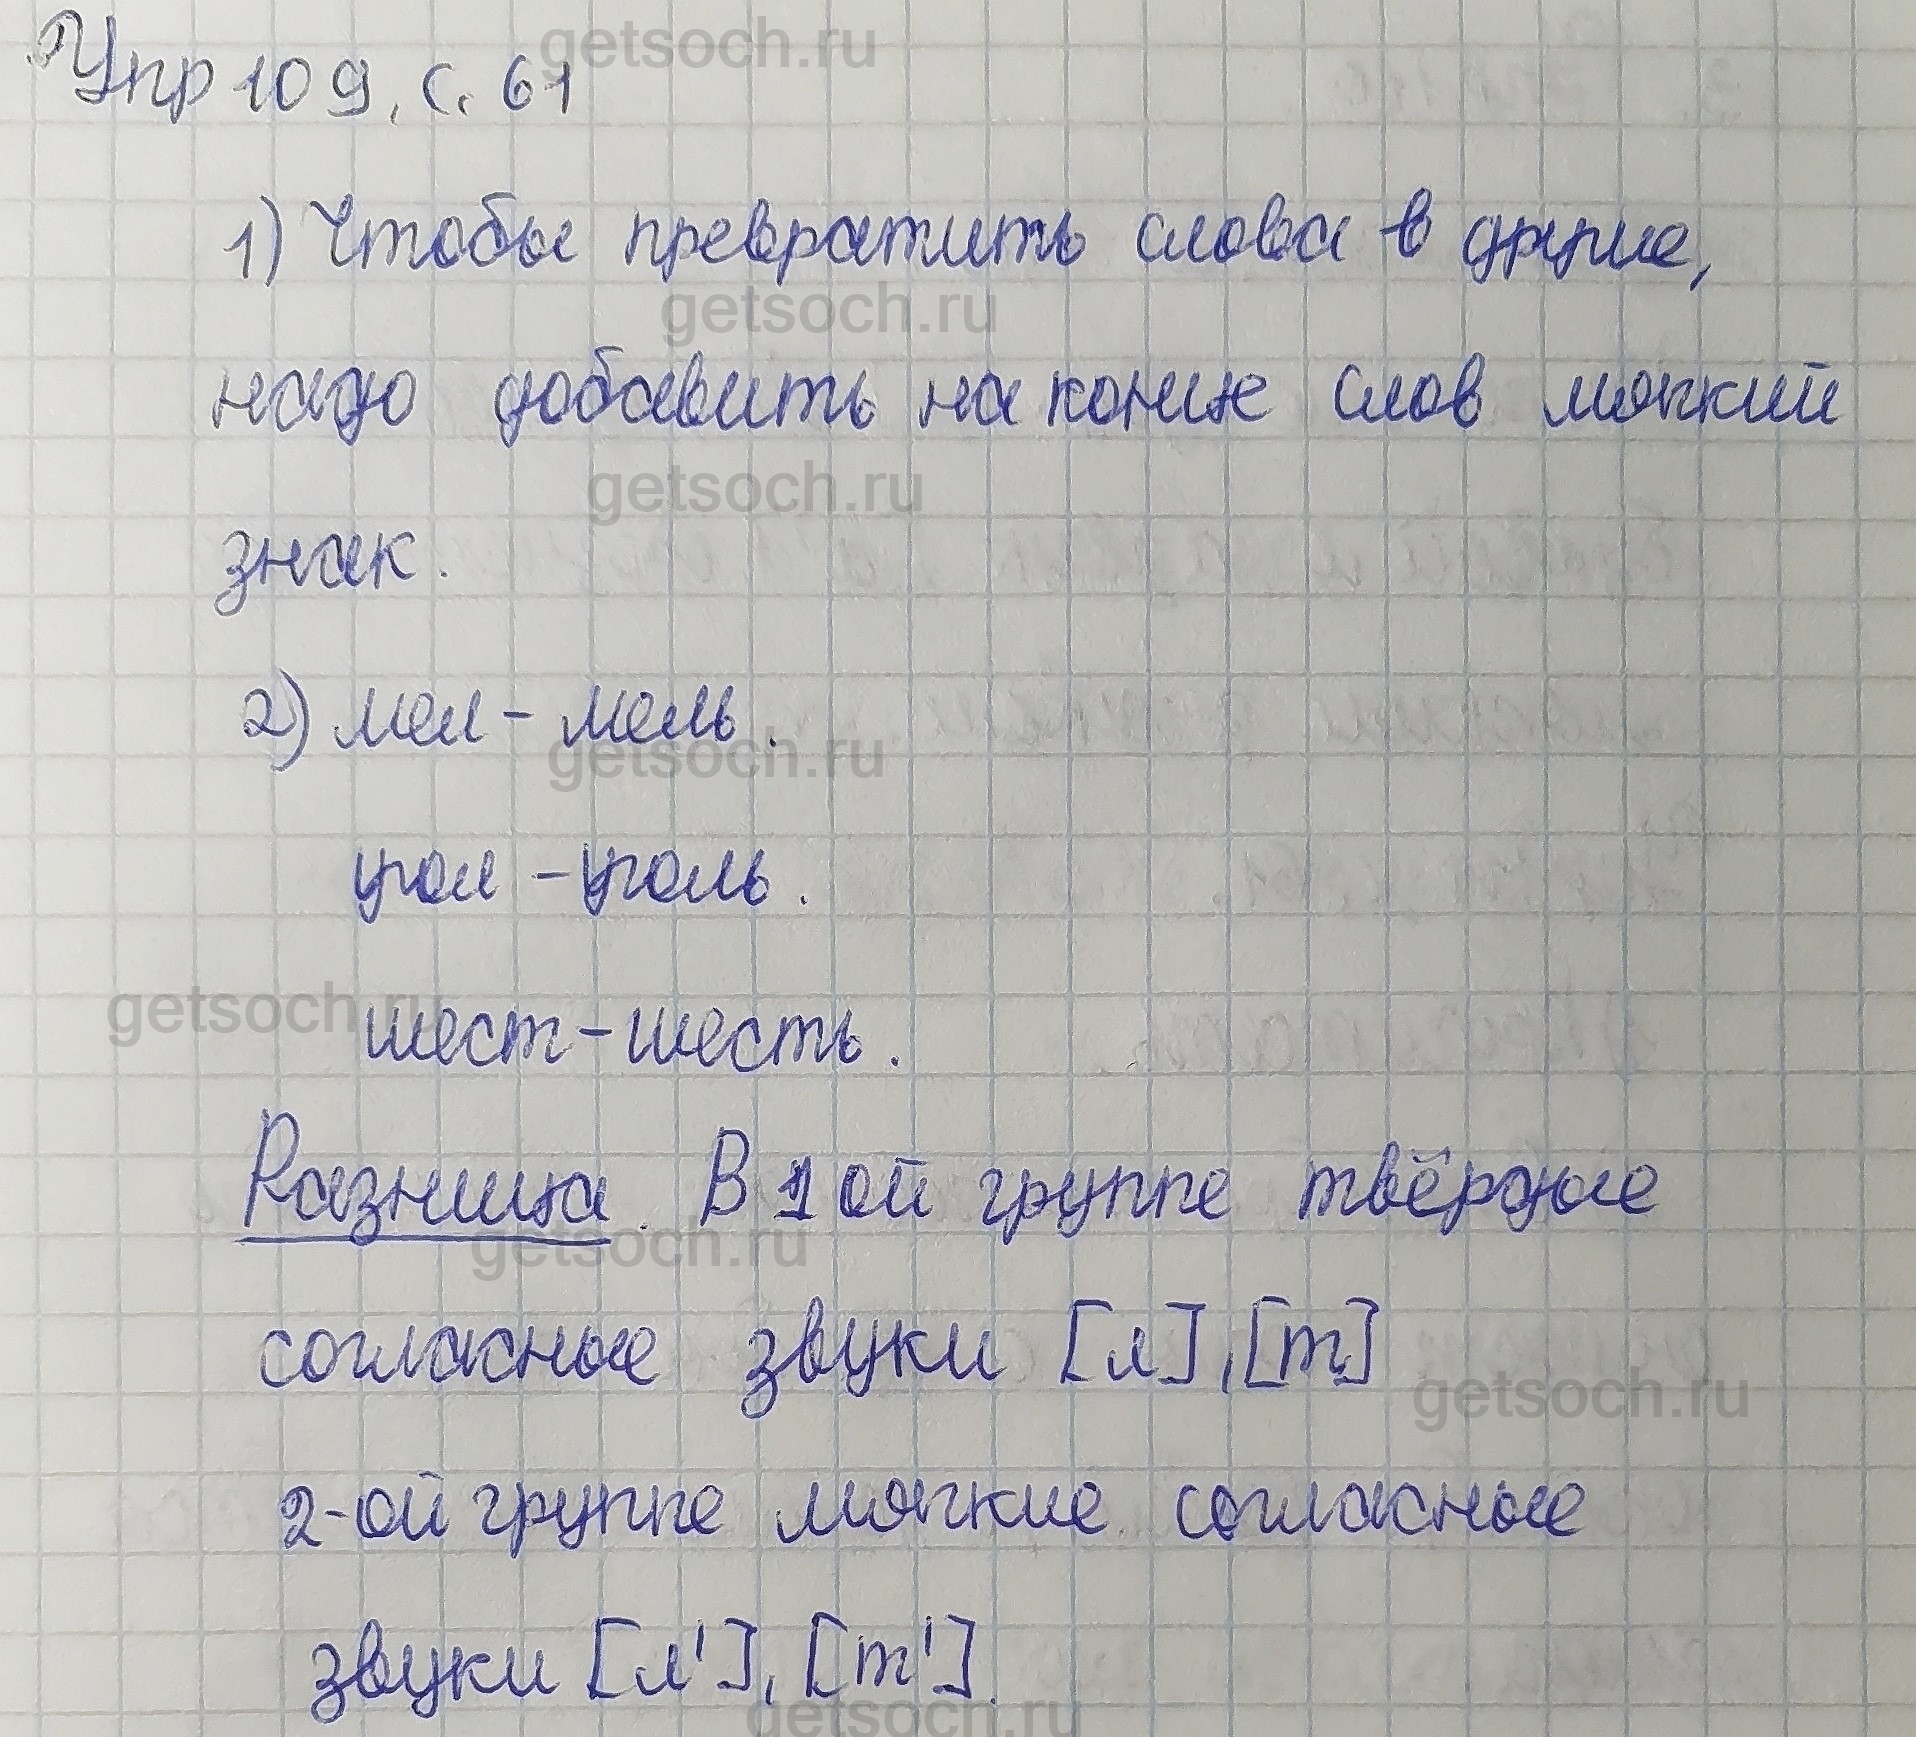 getsoch.ru
Упр 109, с. 61
1) Чтобы превратить слова в другие,
getsoch.ru
надо добавить на конце слов мягкий
getsoch.ru
знак.
2) мел - мель.
getsoch.ru
угол - уголь.
getsoch.ru
шест - шесть.
Разница. В 1 ой группе твёрдые
getsoch.ru
согласные звуки [л], [т]
getsoch.ru
2-ой группе мягкие согласные
звуки [л'], [т'].
getsoch.ru